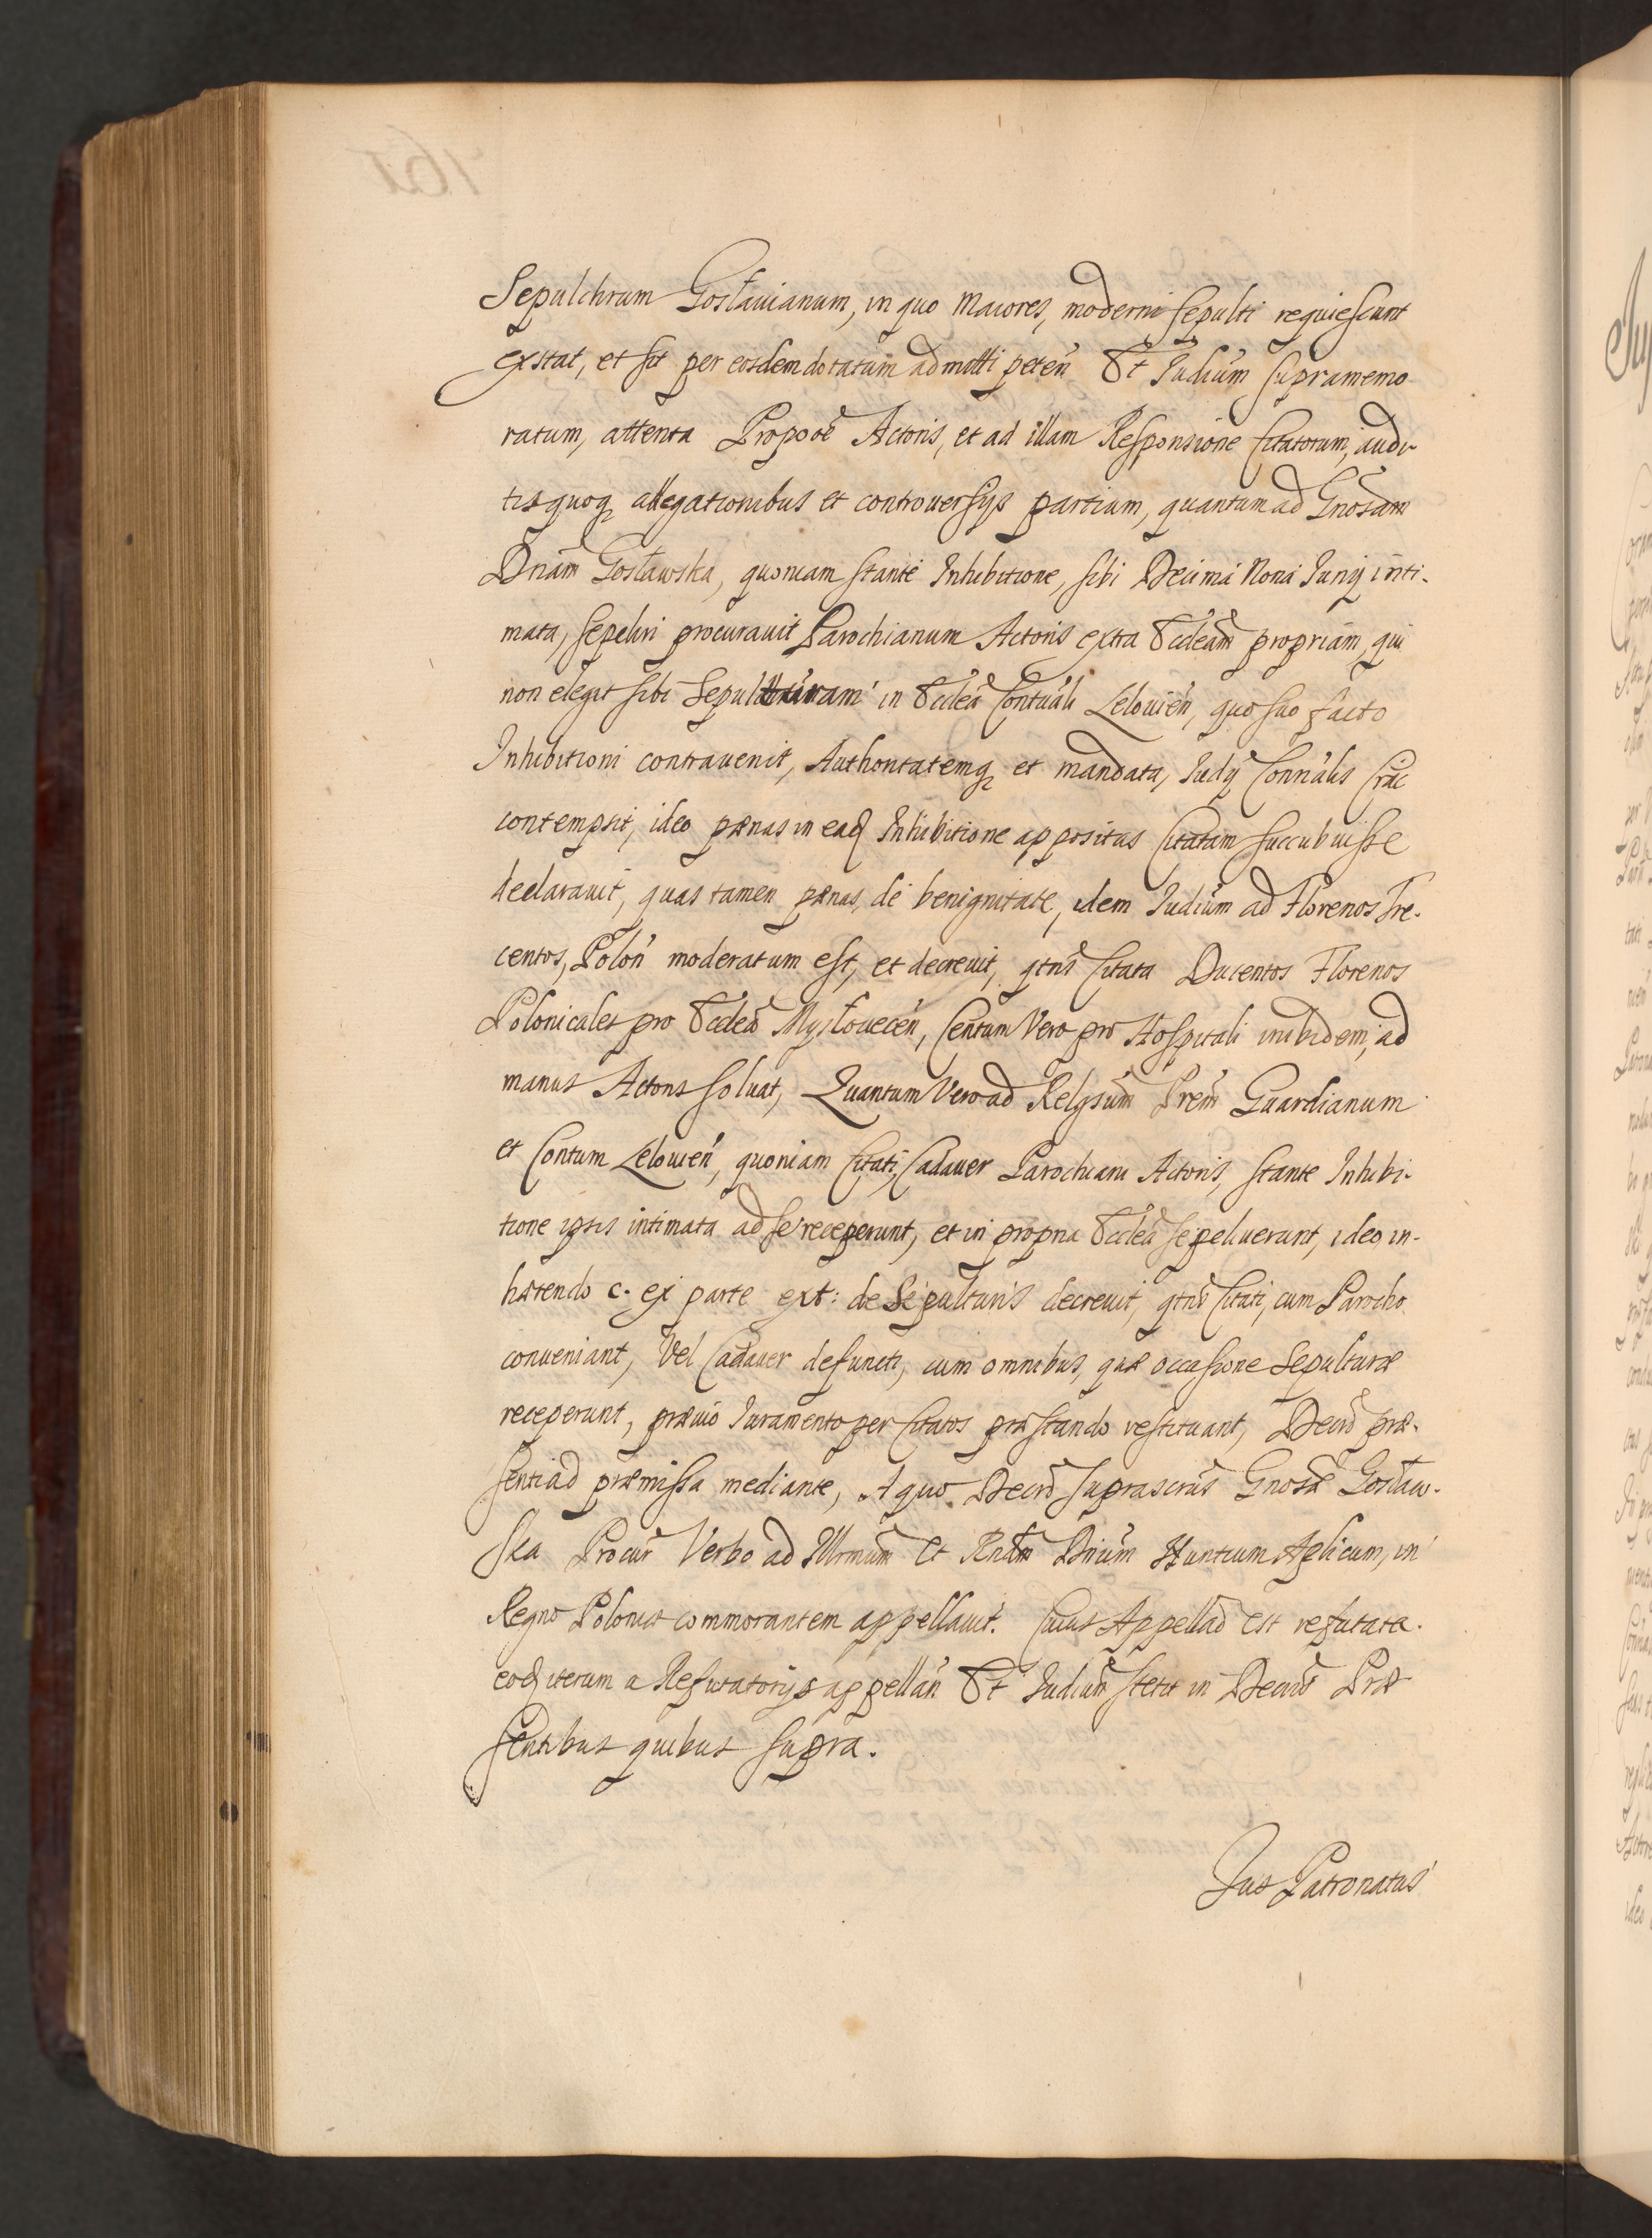 Sepulchrum Gosłauianum, in quo Maiores, moderni sepulti requiescunt
exstat, et sit per eosdem dotatum admitti peteń Et Iudiúm supramemo
ratum, attenta Propoōe Actoris, et ad illam Responsione Citatorum, audi-
tis quoq allegationibus et controuersijs partium, quantum ad Gnosam
Dnām Gosławska, quoniam stante Inhibitione, sibi Decima Nona Iunij inti-
mata, sepeliri procurauit Parochianum Actoris extra Eccleām propriam, qui
non elegit sibi Sepulturam in Ecclēa Contuāli Lelouień, quo suo facto
Inhibitioni contrauenit, Authoritatemq et mandata, Iudij Connālis Crac
contempsit, ideo pænas in eaď Inhibitione appositas Citatam succubuisse
declarauit, quas tamen pænas, de benignitate, idem Iudiúm ad Florenos Tre-
centos, Poloń moderatum est, et decreuit, qtns Citata Ducentos Florenos
Polonicales pro Ecclēa Mysłoueceń, Centum Vero pro Hospitali inibidem, ad
manus Actoris soluat, Quantum Vero ad Relgsum Prem Guardianum
et Contum Lelouień, quoniam Citati, Cadauer Parochiani Actoris, stante Inhibi-
tione ipsis intimata ad se receperunt, et in propria Ecclēa sepeliuerunt, ideo in-
hærendo c. ex parte ext: de Sepulturis decreuit, qtns Citati, cum Parocho
conueniant, Vel Cadauer defuncti, cum omnibus, quæ occasione Sepulturæ
receperunt, præuio Iuramento per Citatos præstando restituant, Decro præ-
senti ad præmissa mediante, A quo Decro suprascrus Gnosæ Gosław-
ska Procur Verbo ad Illrmum et Rndm Dnum Nuntium Aplicum, in
Regno Poloniæ commorantem appellauit. Cuius Appellaō est refutata.
eoď iterum a Refutatorijs appellań Et Iudium stetit in Decro Præ
sentibus quibus supra.
Jus Patronatus